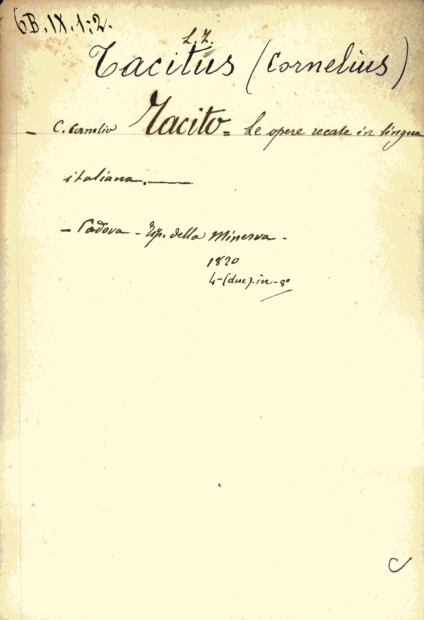 6B.IX.1;2.
L.I.
Tacitus (Cornelius)
– C. Cornelio Tacito = Le opere recate in lingua
italiana. —
– Padova – Tip. della Minerva –
1820
4-(due)-in-8°
C